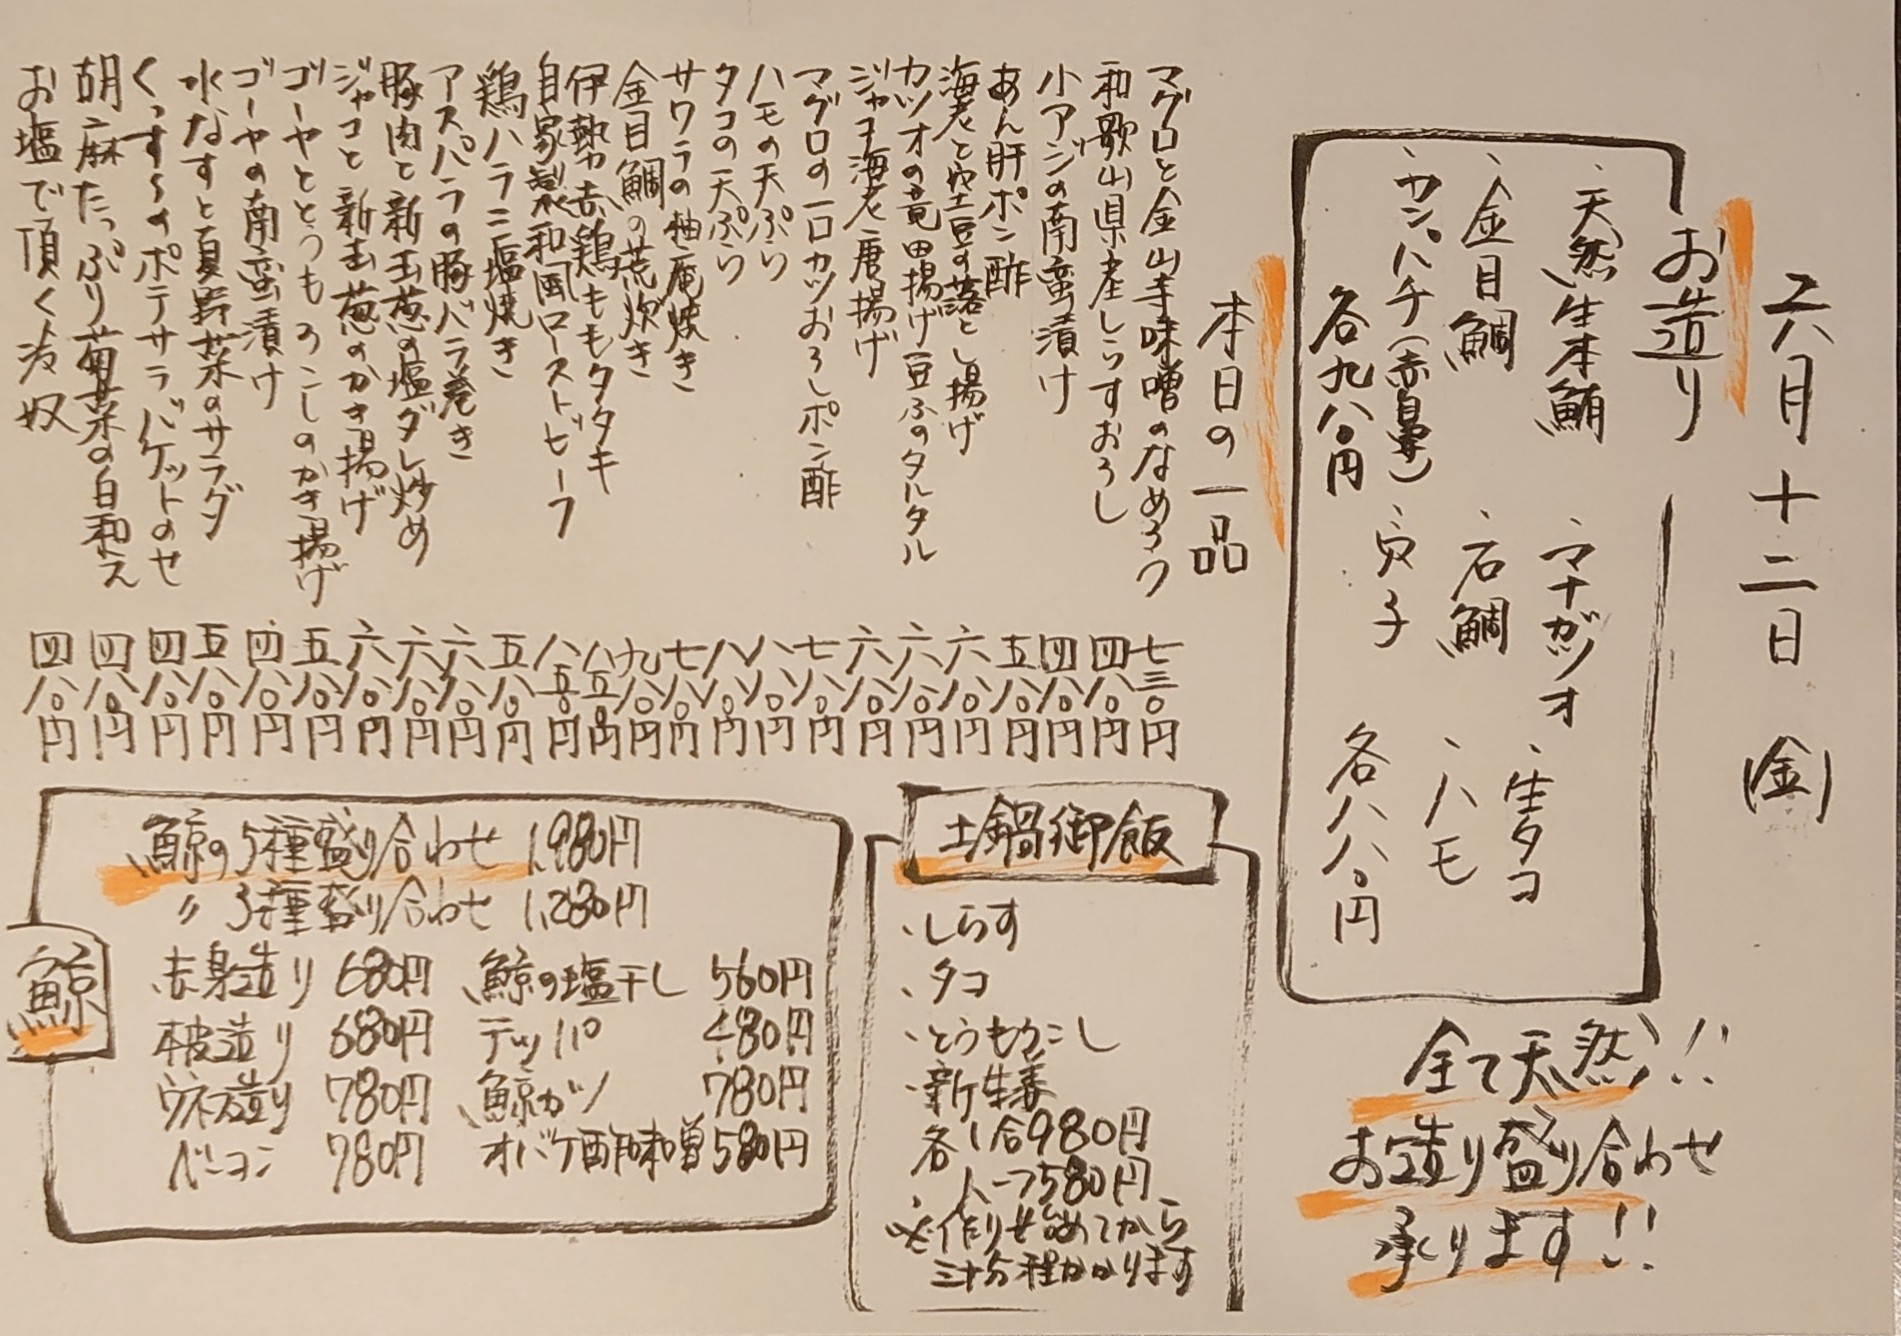 六月十二日(金)
お造り
、天然生本鮪 、マナガツオ 、生タコ
、金目鯛 、石鯛 、ハモ
、カンパチ(赤鼻) 、穴子
各九八〇円 各八八〇円
全て天然!!
お造り盛り合わせ
承ります!!
本日の一品
マグロと金山寺味噌のなめろう 七三〇円
和歌山県産しらすおろし 四八〇円
小アジの南蛮漬け 四八〇円
あん肝ポン酢 五八〇円
海老と空豆の落とし揚げ 六八〇円
カツオの竜田揚げ豆ふのタルタル 六八〇円
ジャコ海老唐揚げ 六八〇円
マグロの一口カツおろしポン酢 七八〇円
ハモの天ぷら 八八〇円
タコの天ぷら 八八〇円
サワラの柚庵焼き 七八〇円
金目鯛の荒炊き 九八〇円
伊勢赤鶏ももタタキ 八五〇円
自家製和風ローストビーフ 八五〇円
鶏ハラミ塩焼き 五八〇円
アスパラの豚バラ巻き 六八〇円
豚肉と新玉葱の塩ダレ炒め 六八〇円
ジャコと新玉葱のかき揚げ 六八〇円
ゴーヤととうもろこしのかき揚げ 五八〇円
ゴーヤの南蛮漬け 四八〇円
水なすと夏野菜のサラダ 五八〇円
ポテサラバケットのせ 四八〇円
胡麻たっぷり菊菜の白和え 四八〇円
お塩で頂く冷奴 四八〇円
土鍋御飯
、しらす
、タコ
、とうもろこし
、新生姜
各1合980円
ハーフ580円
※作り始めてから
三十分程かかります
鯨
鯨の5種盛り合わせ 1,980円
〃 3種盛り合わせ 1,280円
赤身造り 680円 鯨の塩干し 560円
本皮造り 680円 テッパ 480円
ウネス造り 780円 鯨カツ 780円
ベーコン 780円 オバケ酢味噌 580円